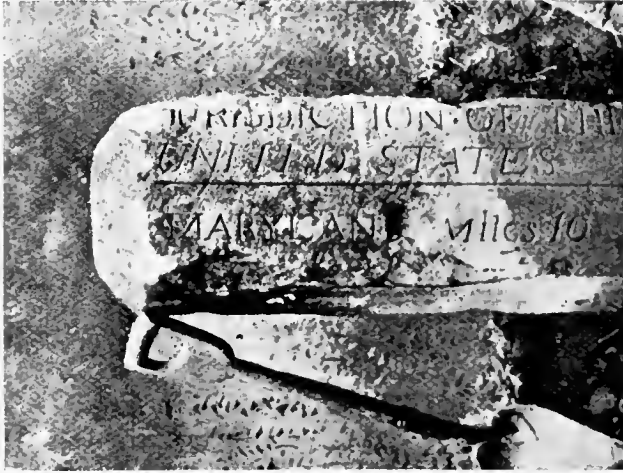 JURISDICTION OF THE
UNITED STATES
MARYLAND Miles 10